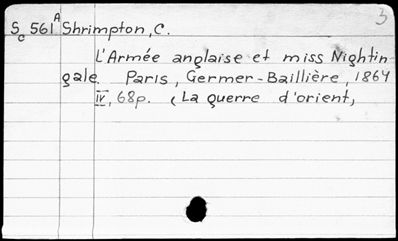 3
Sc 561A Shrimpton, C.
L'Armée anglaise et miss Nightin
gale. Paris, Germer-Baillière, 1864
iv, 68p. (La guerre d'orient,